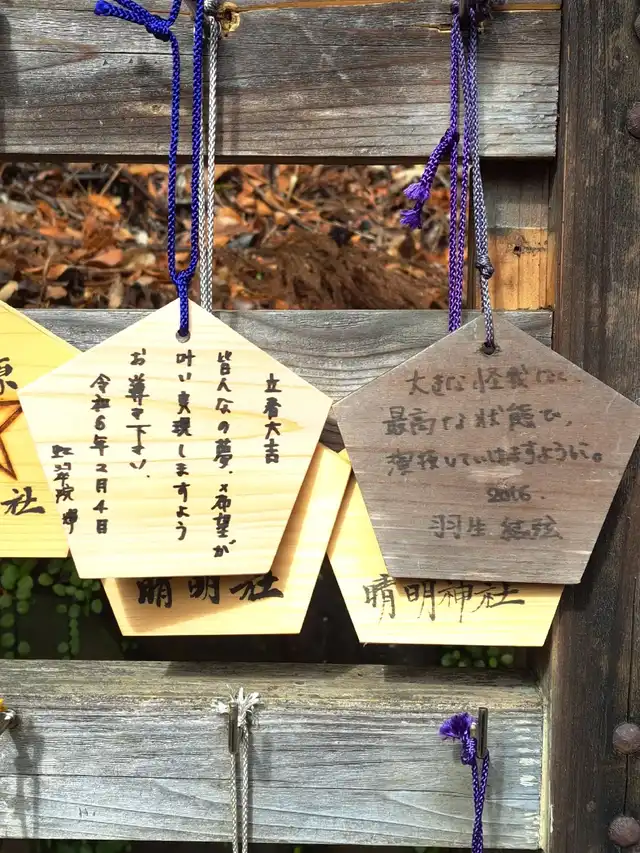 原
社
立春大吉
皆んなの夢、希望が
叶い実現しますよう
お導き下さい。
令和6年2月4日
晴明社
大きな怪我なく、
最高な状態で、
演技していけますように。
2016.
羽生結弦
晴明神社